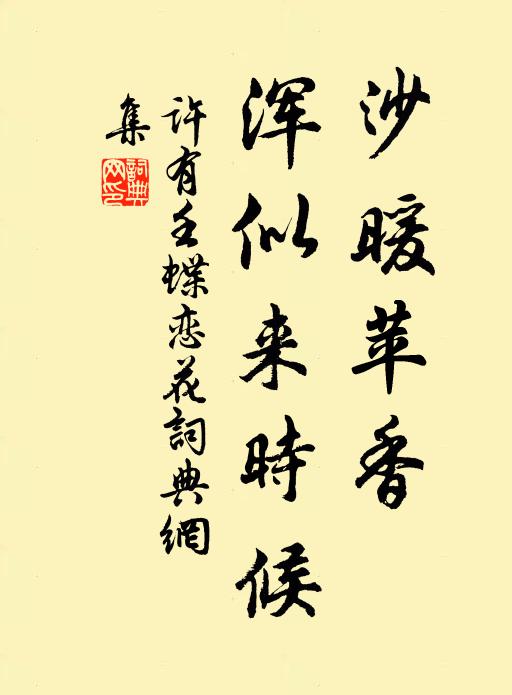 沙暖苹香
浑似来時候
许有壬蝶恋花詞典網
集
詞典網印